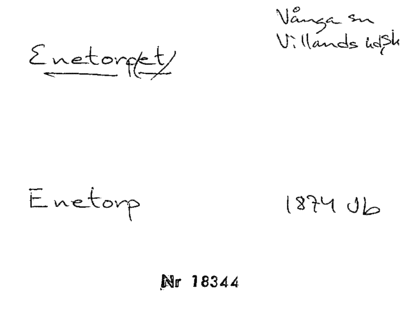 Vånga sn
Enetorp(et)
Villands hd, Sk
Enetorp 1874 Jb
Nr 18344